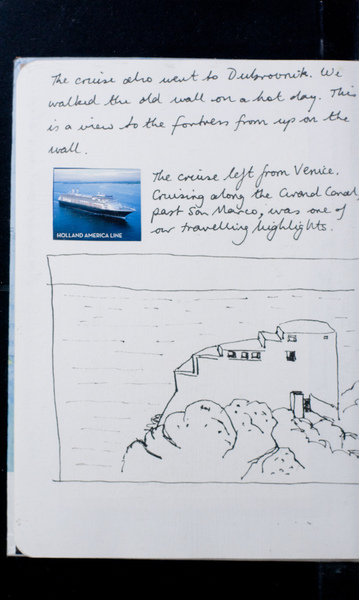 The cruise also went to Dubrovnik. We
walked the old wall on a hot day. This
is a view to the fortress from up on the
wall.
The cruise left from Venice.
Cruising along the Grand Canal,
past San Marco, was one of
our travelling highlights.
HOLLAND AMERICA LINE